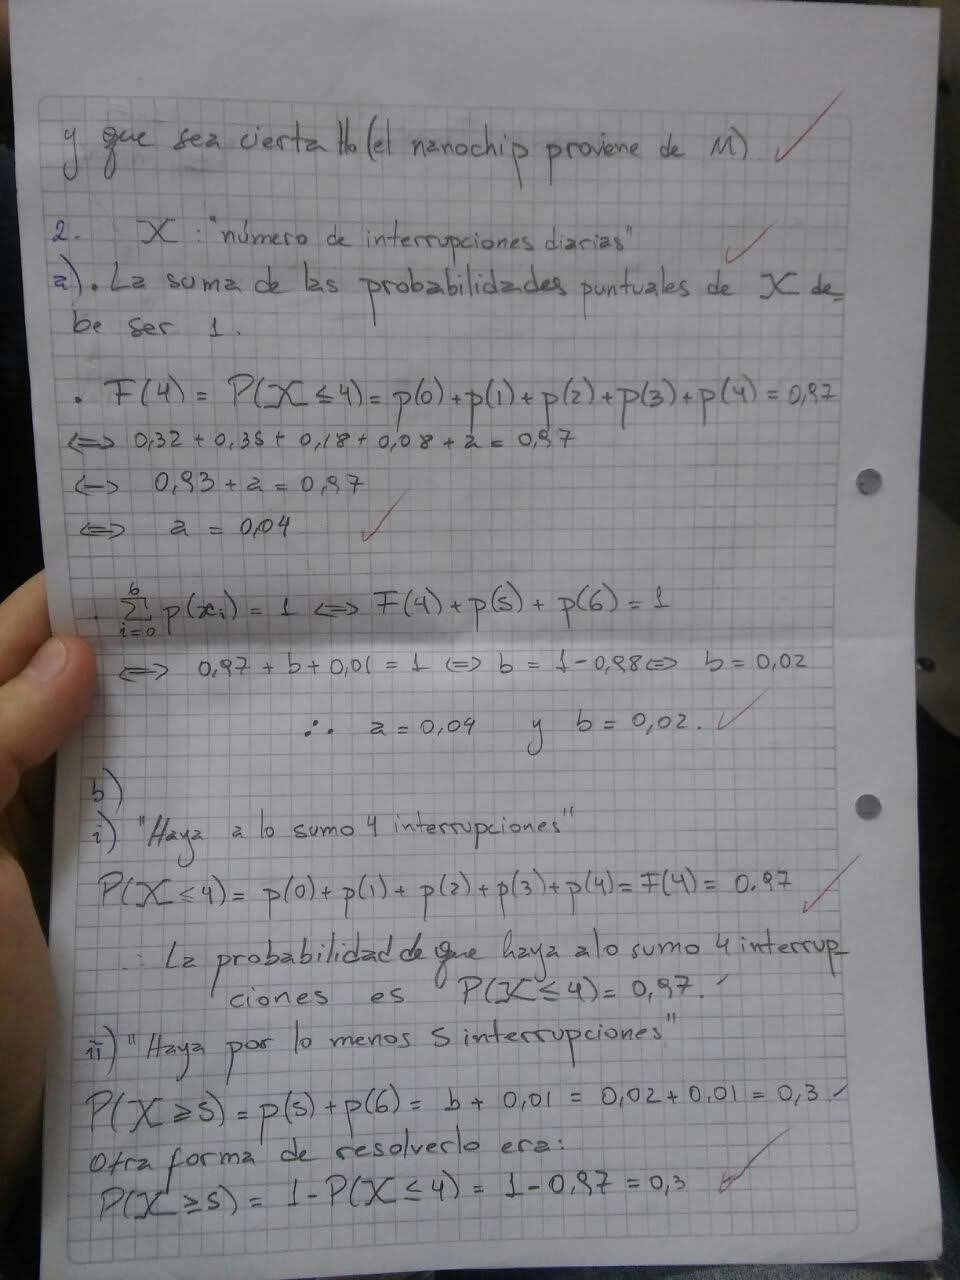 y que sea cierta H₀ (el nanochip proviene de M)
2. X : "número de interrupciones diarias"
a). La suma de las probabilidades puntuales de X de=
be ser 1.
. F(4) = P(X ≤ 4) = p(0) + p(1) + p(2) + p(3) + p(4) = 0,97
⇔ 0,32 + 0,35 + 0,18 + 0,08 + a = 0,97
⇔ 0,93 + a = 0,97
⇔ a = 0,04
. 6∑i=0 p(xᵢ) = 1 ⇔ F(4) + p(5) + p(6) = 1
⇔ 0,97 + b + 0,01 = 1 ⇔ b = 1 - 0,98 ⇔ b = 0,02
∴ a = 0,04 y b = 0,02.
b)
i) "Haya a lo sumo 4 interrupciones"
P(X ≤ 4) = p(0) + p(1) + p(2) + p(3) + p(4) = F(4) = 0.97
∴ La probabilidad de que haya a lo sumo 4 interrup-
ciones es P(X ≤ 4) = 0,97.
ii) "Haya por lo menos 5 interrupciones"
P(X ≥ 5) = p(5) + p(6) = b + 0,01 = 0,02 + 0.01 = 0,3.
Otra forma de resolverlo era:
P(X ≥ 5) = 1 - P(X ≤ 4) = 1 - 0,97 = 0,3